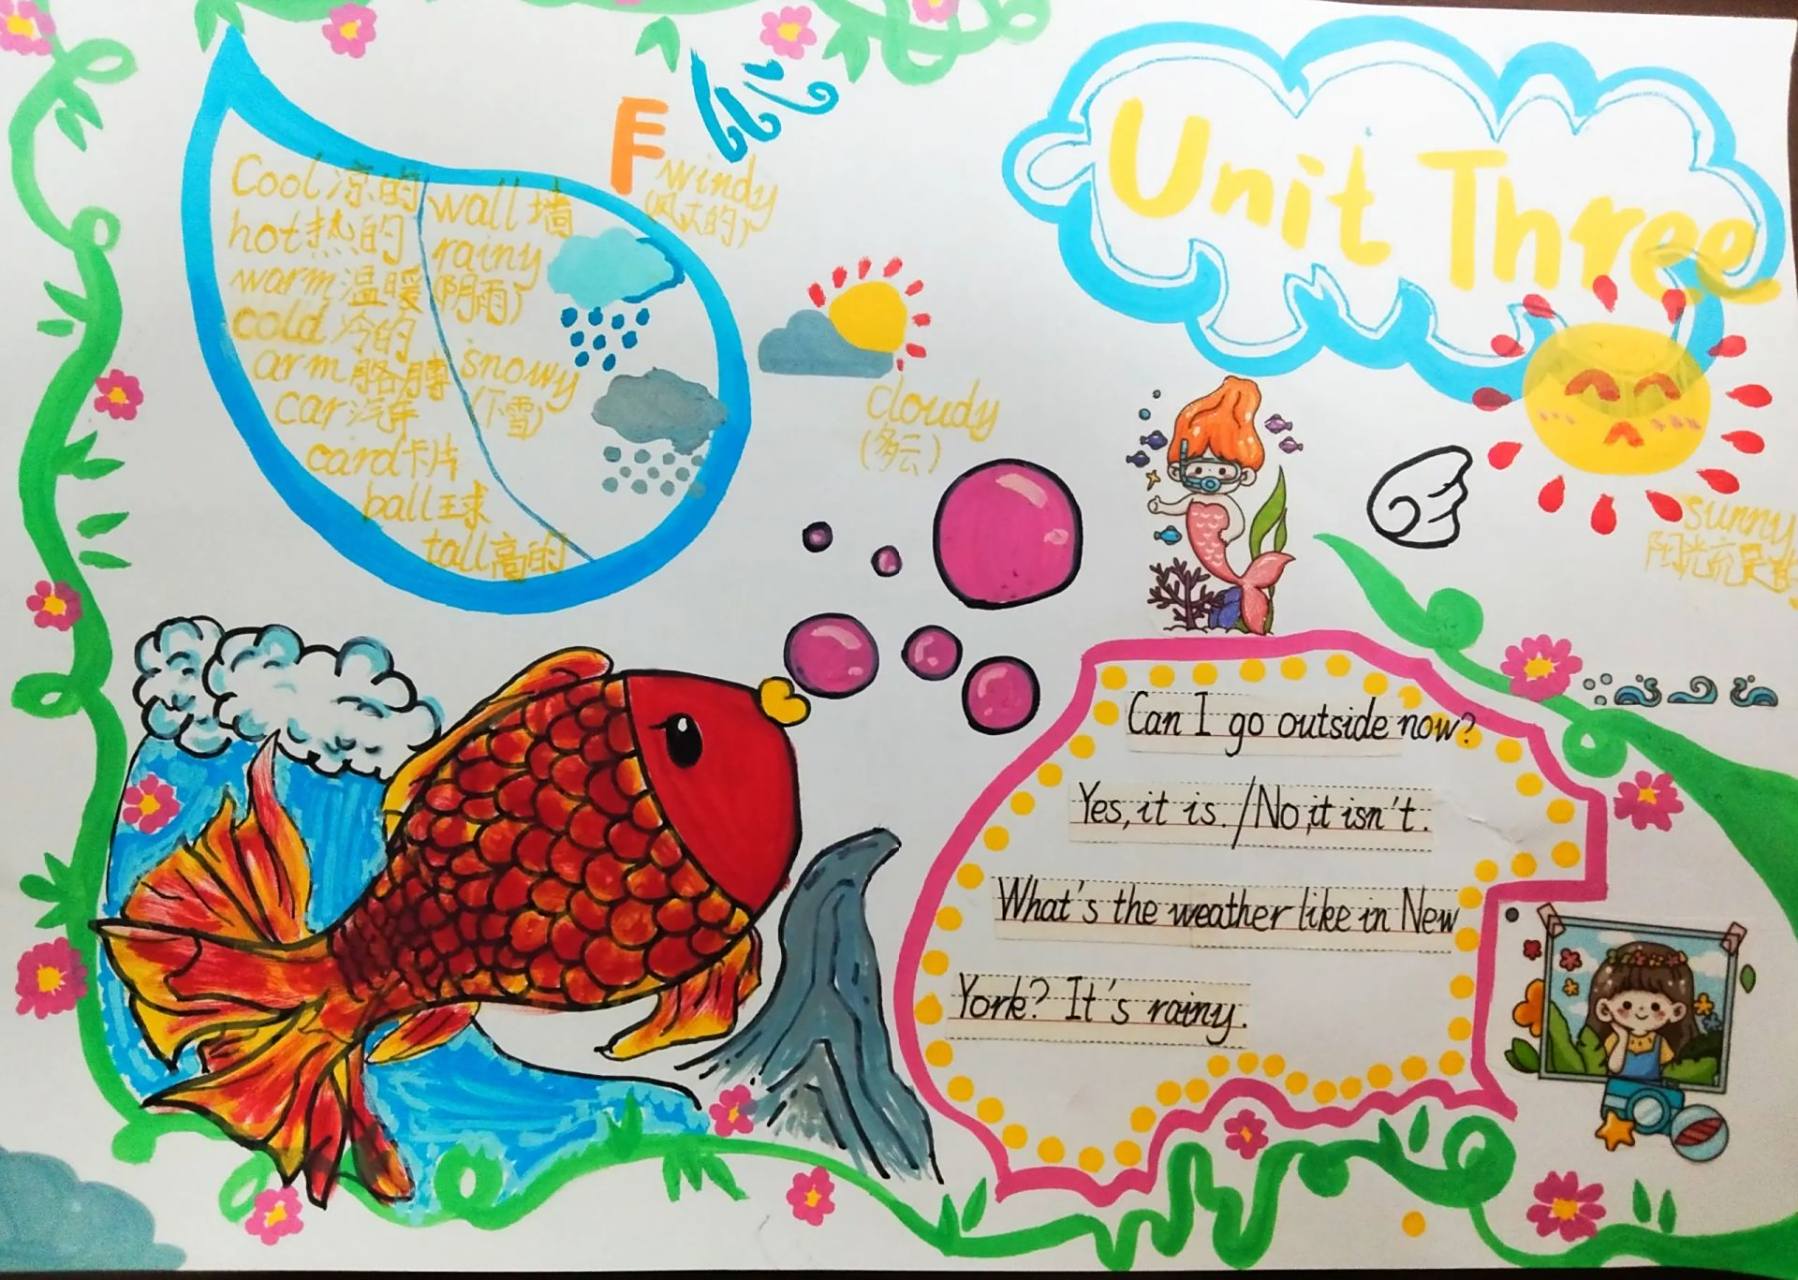 Unit Three
Cool 凉的
hot 热的
warm 温暖
cold 冷的
arm 胳膊
car 汽车
card 卡片
ball 球
tall 高的
wall 墙
rainy
(阴雨)
snowy
(下雪)
F
windy
(风大的)
cloudy
(多云)
sunny
阳光充足
Can I go outside now?
Yes, it is. /No, it isn't.
What's the weather like in New
York? It's rainy.